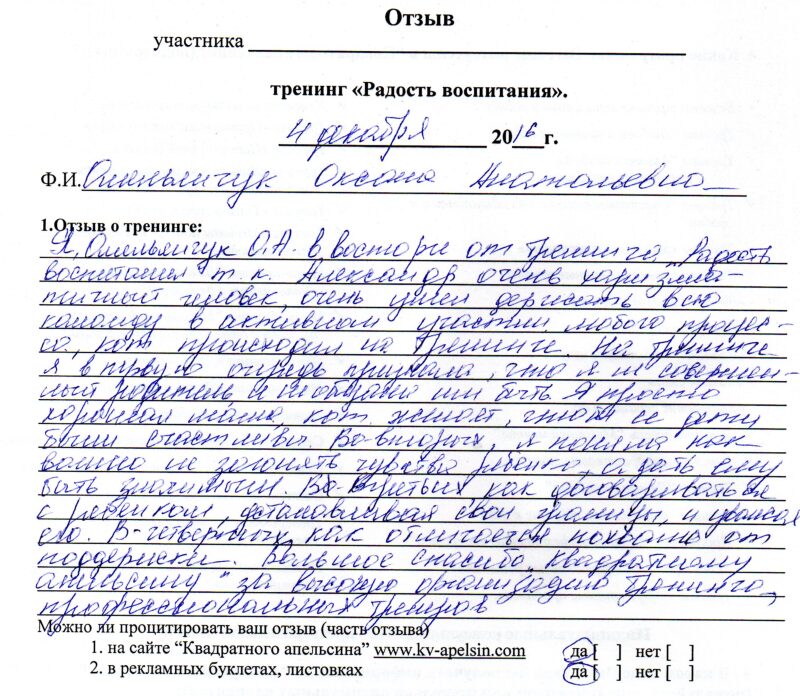 Отзыв
участника
тренинг «Радость воспитания».
4 декабря 2016 г.
Ф.И. Омельянчук Оксана Анатольевна
1.Отзыв о тренинге:
Я, Омельянчук О.А. в восторге от тренинга „Радость
воспитания т.к. Александр очень харизма-
тичный человек, очень умел держать всю
команду в активном участии любого процес-
са, кот. происходил на тренинге. На тренинге
я в первую очередь признала, что я не совершен-
ный родитель и не обязана им быть. Я просто
хорошая мама, кот. желает, чтобы её дети
были счастливы. Во-вторых, я поняла как
важно не загонять чувства ребенка, а дать ему
быть значимым. Во-третьих, как договариваться
с ребенком, устанавливая свои границы, и
его. В-четвертых, как отличается похвала от
поддержки. Большое спасибо „Квадратному
апельсину" за высокую организацию тренинга,
профессиональных тренеров
Можно ли процитировать ваш отзыв (часть отзыва)
1. на сайте “Квадратного апельсина” www.kv-apelsin.com да [ ] нет [ ]
2. в рекламных буклетах, листовках да [ ] нет [ ]